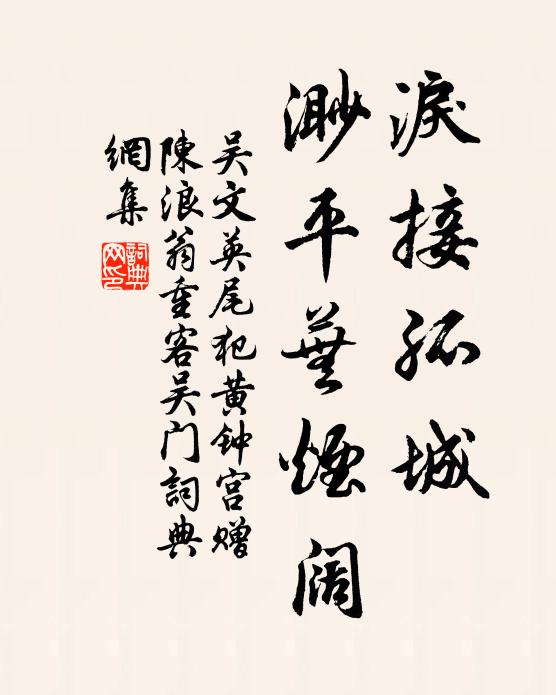 淚接孤城
渺平蕪煙阔
吴文英尾犯黄钟宫赠
陳浪翁重客吴门詞典
網集
詞典
网印